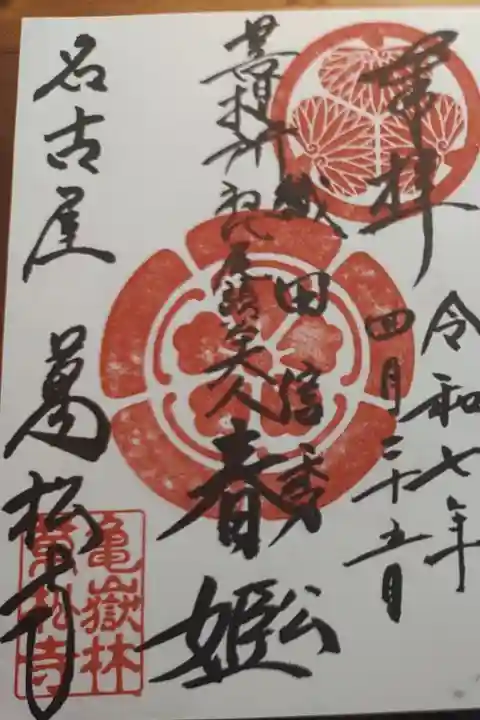 奉拝
令和七年
四月二十五日
織田信秀公
春姫
名古屋 萬松寺
亀嶽林
萬松寺